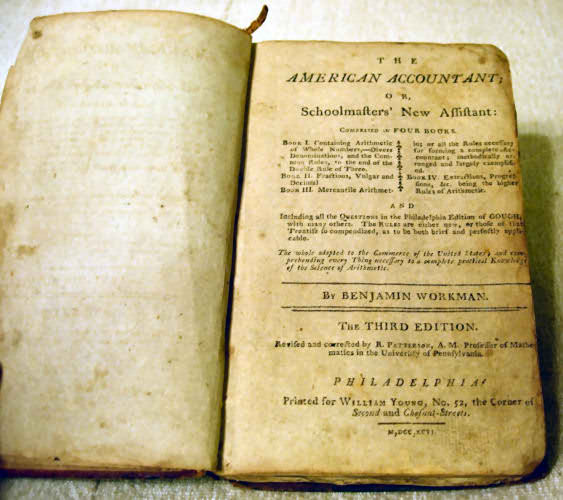 THE
AMERICAN ACCOUNTANT;
OR,
Schoolmasters' New Assistant:
COMPRISED IN FOUR BOOKS.
BOOK I. Containing Arithmetic
of Whole Numbers,—Divers
Denominations, and the Com-
mon Rules, to the end of the
Double Rule of Three.
BOOK II. Fractions, Vulgar and
Decimal
BOOK III. Mercantile Arithmet-
ic; or all the Rules necessary
for forming a complete Ac-
countant; methodically ar-
ranged and largely exemplifi-
ed.
BOOK IV. Extractions, Progres-
sions, &c. being the higher
Rules of Arithmetic.
AND
Including all the QUESTIONS in the Philadelphia Edition of GOUGH,
with many others. The RULES are either new, or those of that
Treatise so compendized, as to be both brief and perfectly appli-
cable.
The whole adapted to the Commerce of the United States, and com-
prehending every Thing necessary to a complete practical Knowledge
of the Science of Arithmetic.
BY BENJAMIN WORKMAN.
THE THIRD EDITION.
Revised and corrected by R. PATTERSON, A. M. Professor of Mathe-
matics in the University of Pennsylvania.
PHILADELPHIA:
Printed for WILLIAM YOUNG, No. 52, the Corner of
Second and Chesnut-Streets.
M,DCC,XCVI.